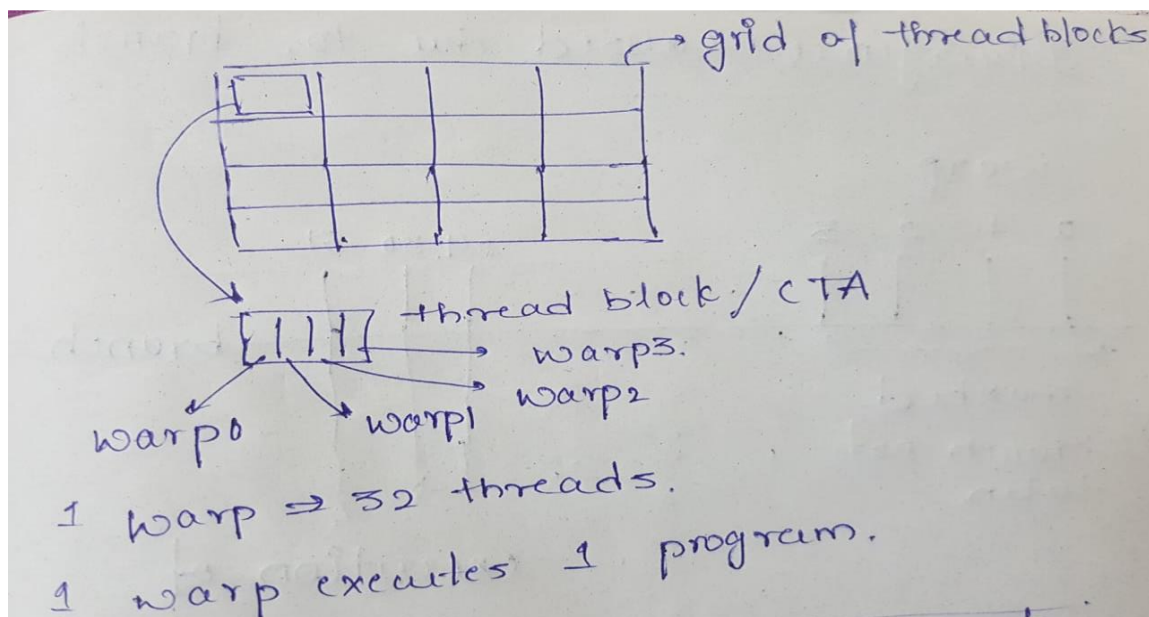 grid of thread blocks
thread block / CTA
warp3.
warp2
warp0
warp1
1 warp ⇒ 32 threads.
1 warp executes 1 program.